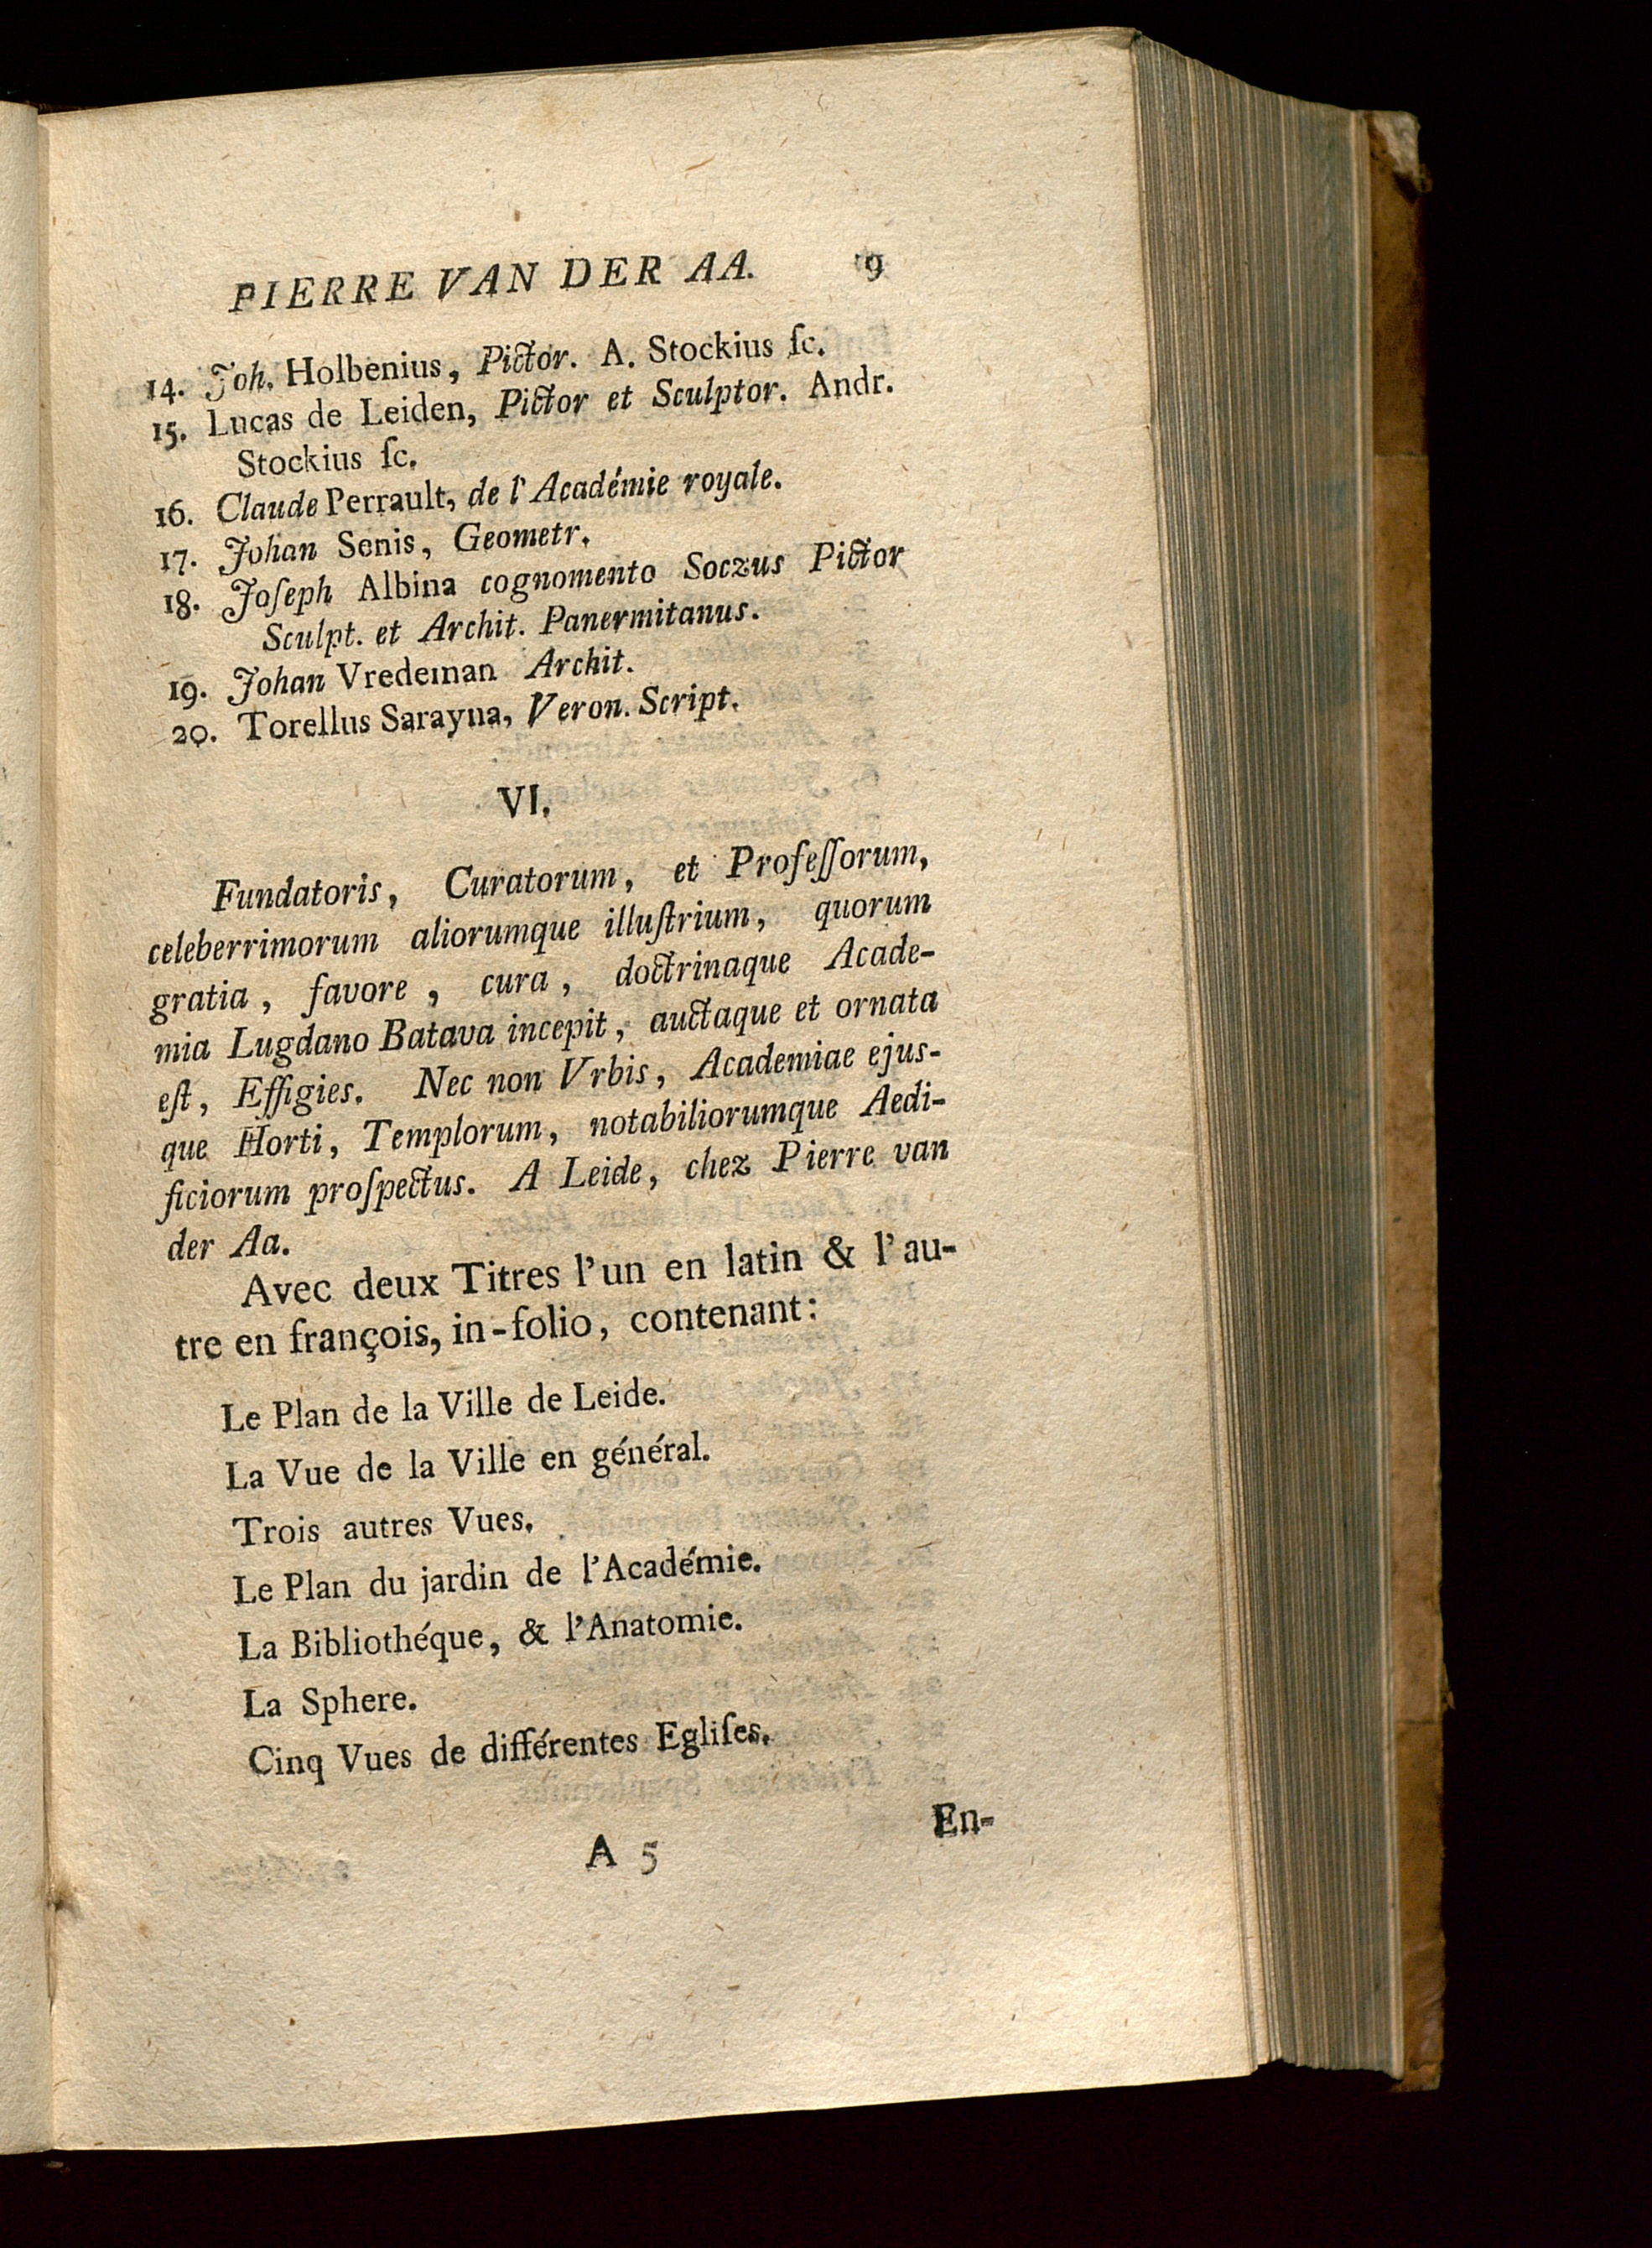 PIERRE VAN DER AA. 9
14. Joh. Holbenius, Pictor. A. Stockius ſc.
15. Lucas de Leiden, Pictor et Sculptor. Andr.
Stockius ſc.
16. Claude Perrault, de l'Académie royale.
17. Johan Senis, Geometr.
18. Joſeph Albina cognomento Soczus Pictor
Sculpt. et Archit. Panermitanus.
19. Johan Vredeman Archit.
20. Torellus Sarayna, Veron. Script.
VI.
Fundatoris, Curatorum, et Profeſſorum,
celeberrimorum aliorumque illuſtrium, quorum
gratia, favore, cura, doctrinaque Acade-
mia Lugdano Batava incepit, auctaque et ornata
eſt, Effigies. Nec non Vrbis, Academiae ejus-
que Horti, Templorum, notabiliorumque Aedi-
ficiorum proſpectus. A Leide, chez Pierre van
der Aa.
Avec deux Titres l'un en latin & l'au-
tre en françois, in-folio, contenant:
Le Plan de la Ville de Leide.
La Vue de la Ville en général.
Trois autres Vues.
Le Plan du jardin de l'Académie.
La Bibliothéque, & l'Anatomie.
La Sphere.
Cinq Vues de différentes Egliſes.
A 5 En-